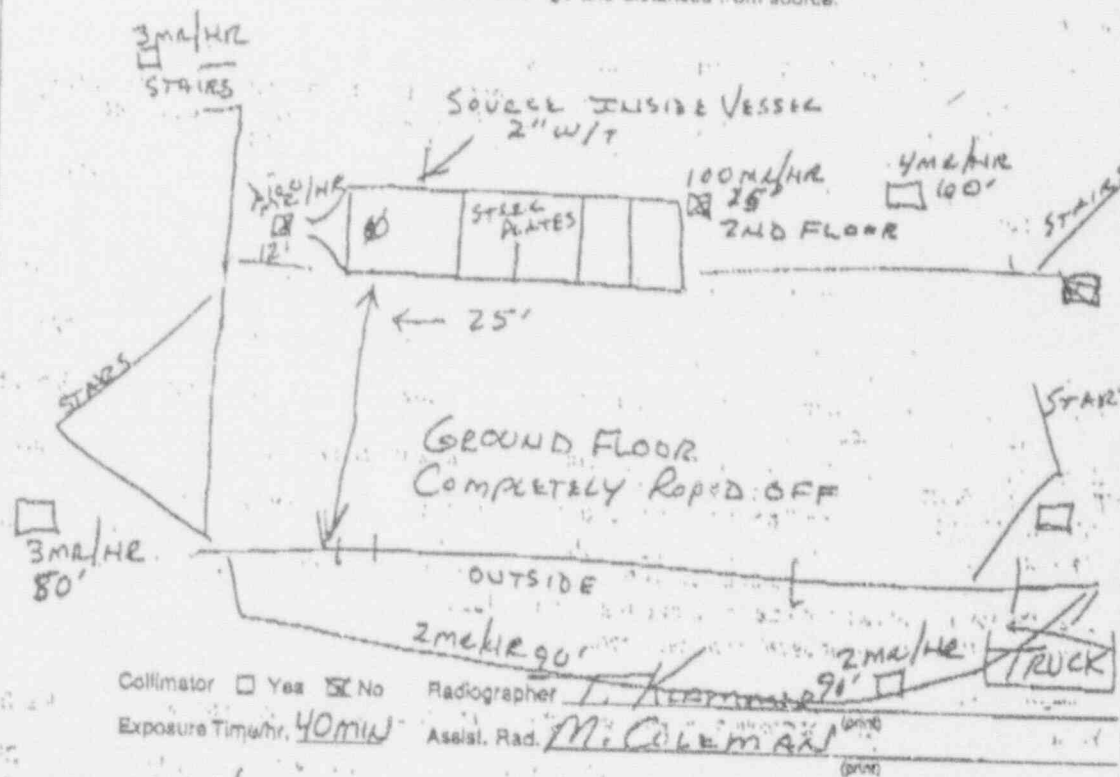 distances from source.
3MR/HR
STAIRS
SOURCE INSIDE VESSEL
2" W/T
/HR
12'
STEEL
PLATES
100MR/HR
25'
2ND FLOOR
4MR/HR
60'
STAIRS
← 25'
STAIRS
GROUND FLOOR
COMPLETELY ROPED OFF
STAIR
3MR/HR
80'
OUTSIDE
2MR/HR 90'
2MR/HR
90'
TRUCK
Collimator ☐ Yes ☒ No Radiographer
(print)
Exposure Time/hr. 40MIN Assist. Rad. M. COLEMAN
(print)